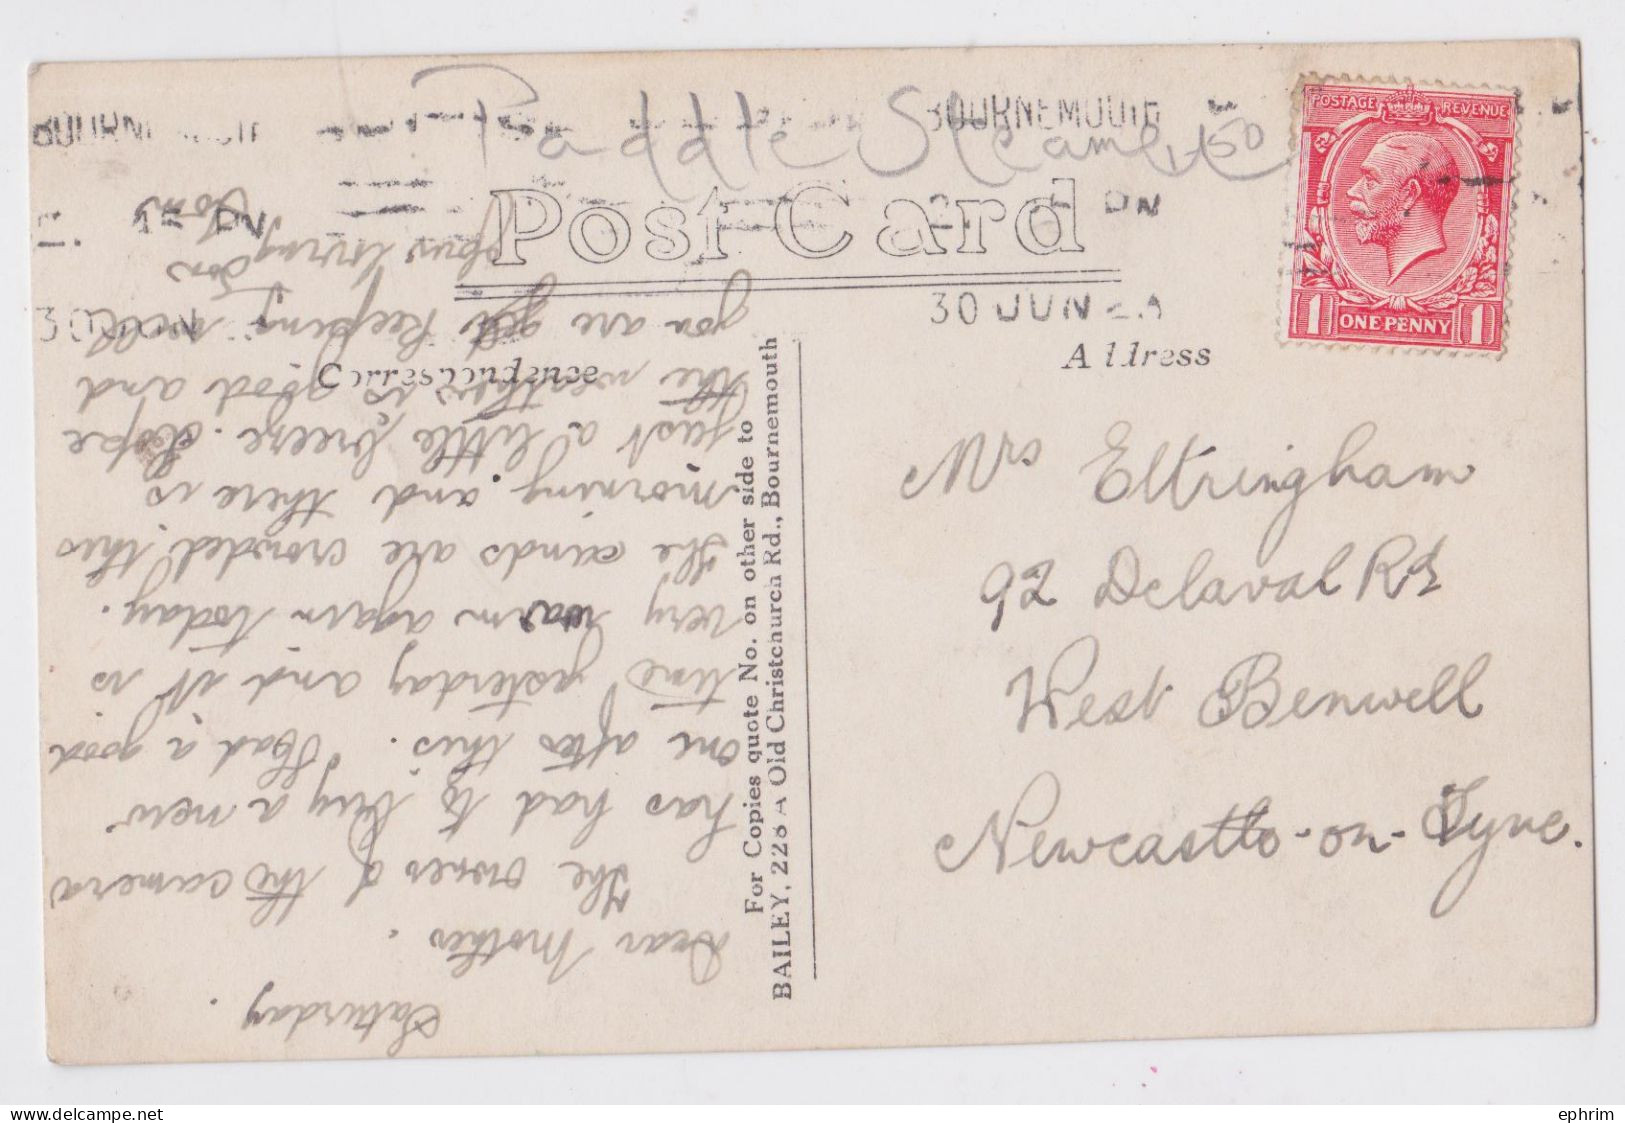 Paddle Steamer
BOURNEMOUTH
BOURNEMOUTH
15 PM
PM
30 JUN
30 JUN
POSTAGE REVENUE
1 ONE PENNY 1
Post Card
Correspondence
Address
For Copies quote No. on other side to
BAILEY, 228A Old Christchurch Rd., Bournemouth
Saturday.
Dear Mother.
The owner of the camera
has had to buy a new
one after this. Had a good
time yesterday and it is
very warm again today.
The sands are crowded this
morning and there is
just a little breeze. Hope
the weather is good and
you are all keeping well
Your loving
Son
Tom
Mrs Eltringham
92 Delaval Rd
West Benwell
Newcastle-on-Tyne.
ephrim